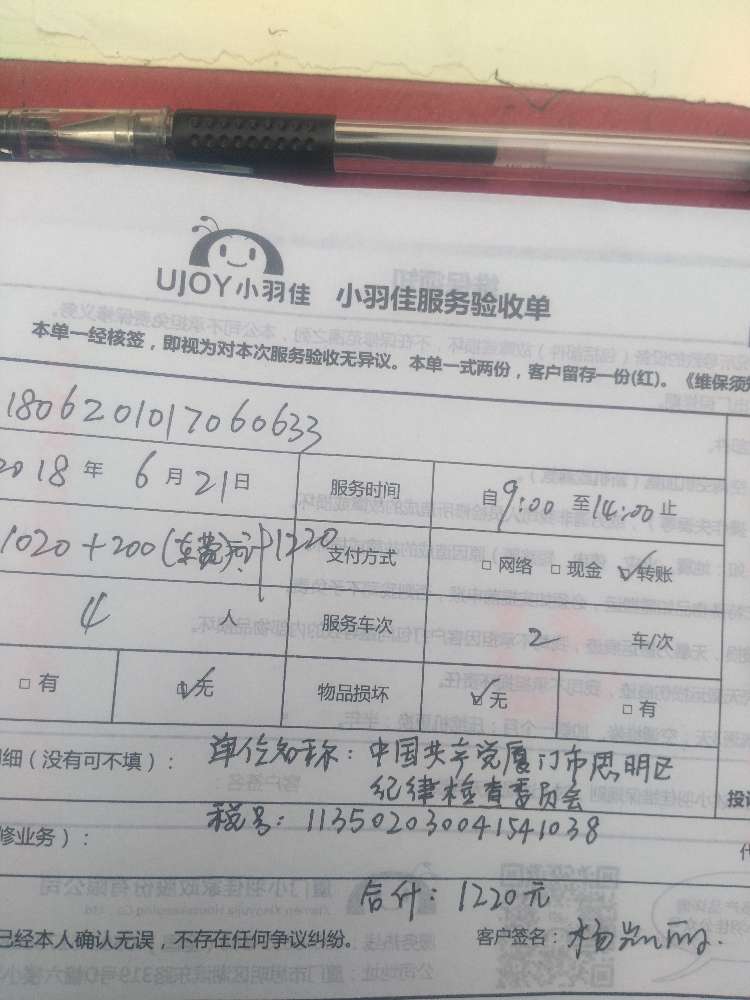 UJOY小羽佳 小羽佳服务验收单
本单一经核签，即视为对本次服务验收无异议。本单一式两份，客户留存一份(红)。《维保须知
1806201017060633
2018年6月21日 服务时间 自9:00至14:00止
1020+200(车费)合计1220 支付方式 □网络 □现金 ☑转账
4人 服务车次 2车/次
□有 ☑无 物品损坏 ☑无 □有
明细（没有可不填）： 单位名称：中国共产党厦门市思明区
纪律检查委员会
投诉
税号：113502030041541038
修业务）：
代
合计：1220元
已经本人确认无误，不存在任何争议纠纷。 客户签名：